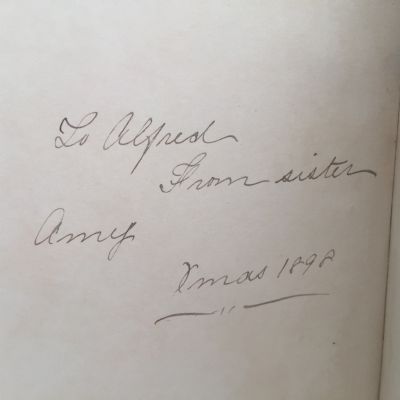 To Alfred
From sister
Amy
Xmas 1898